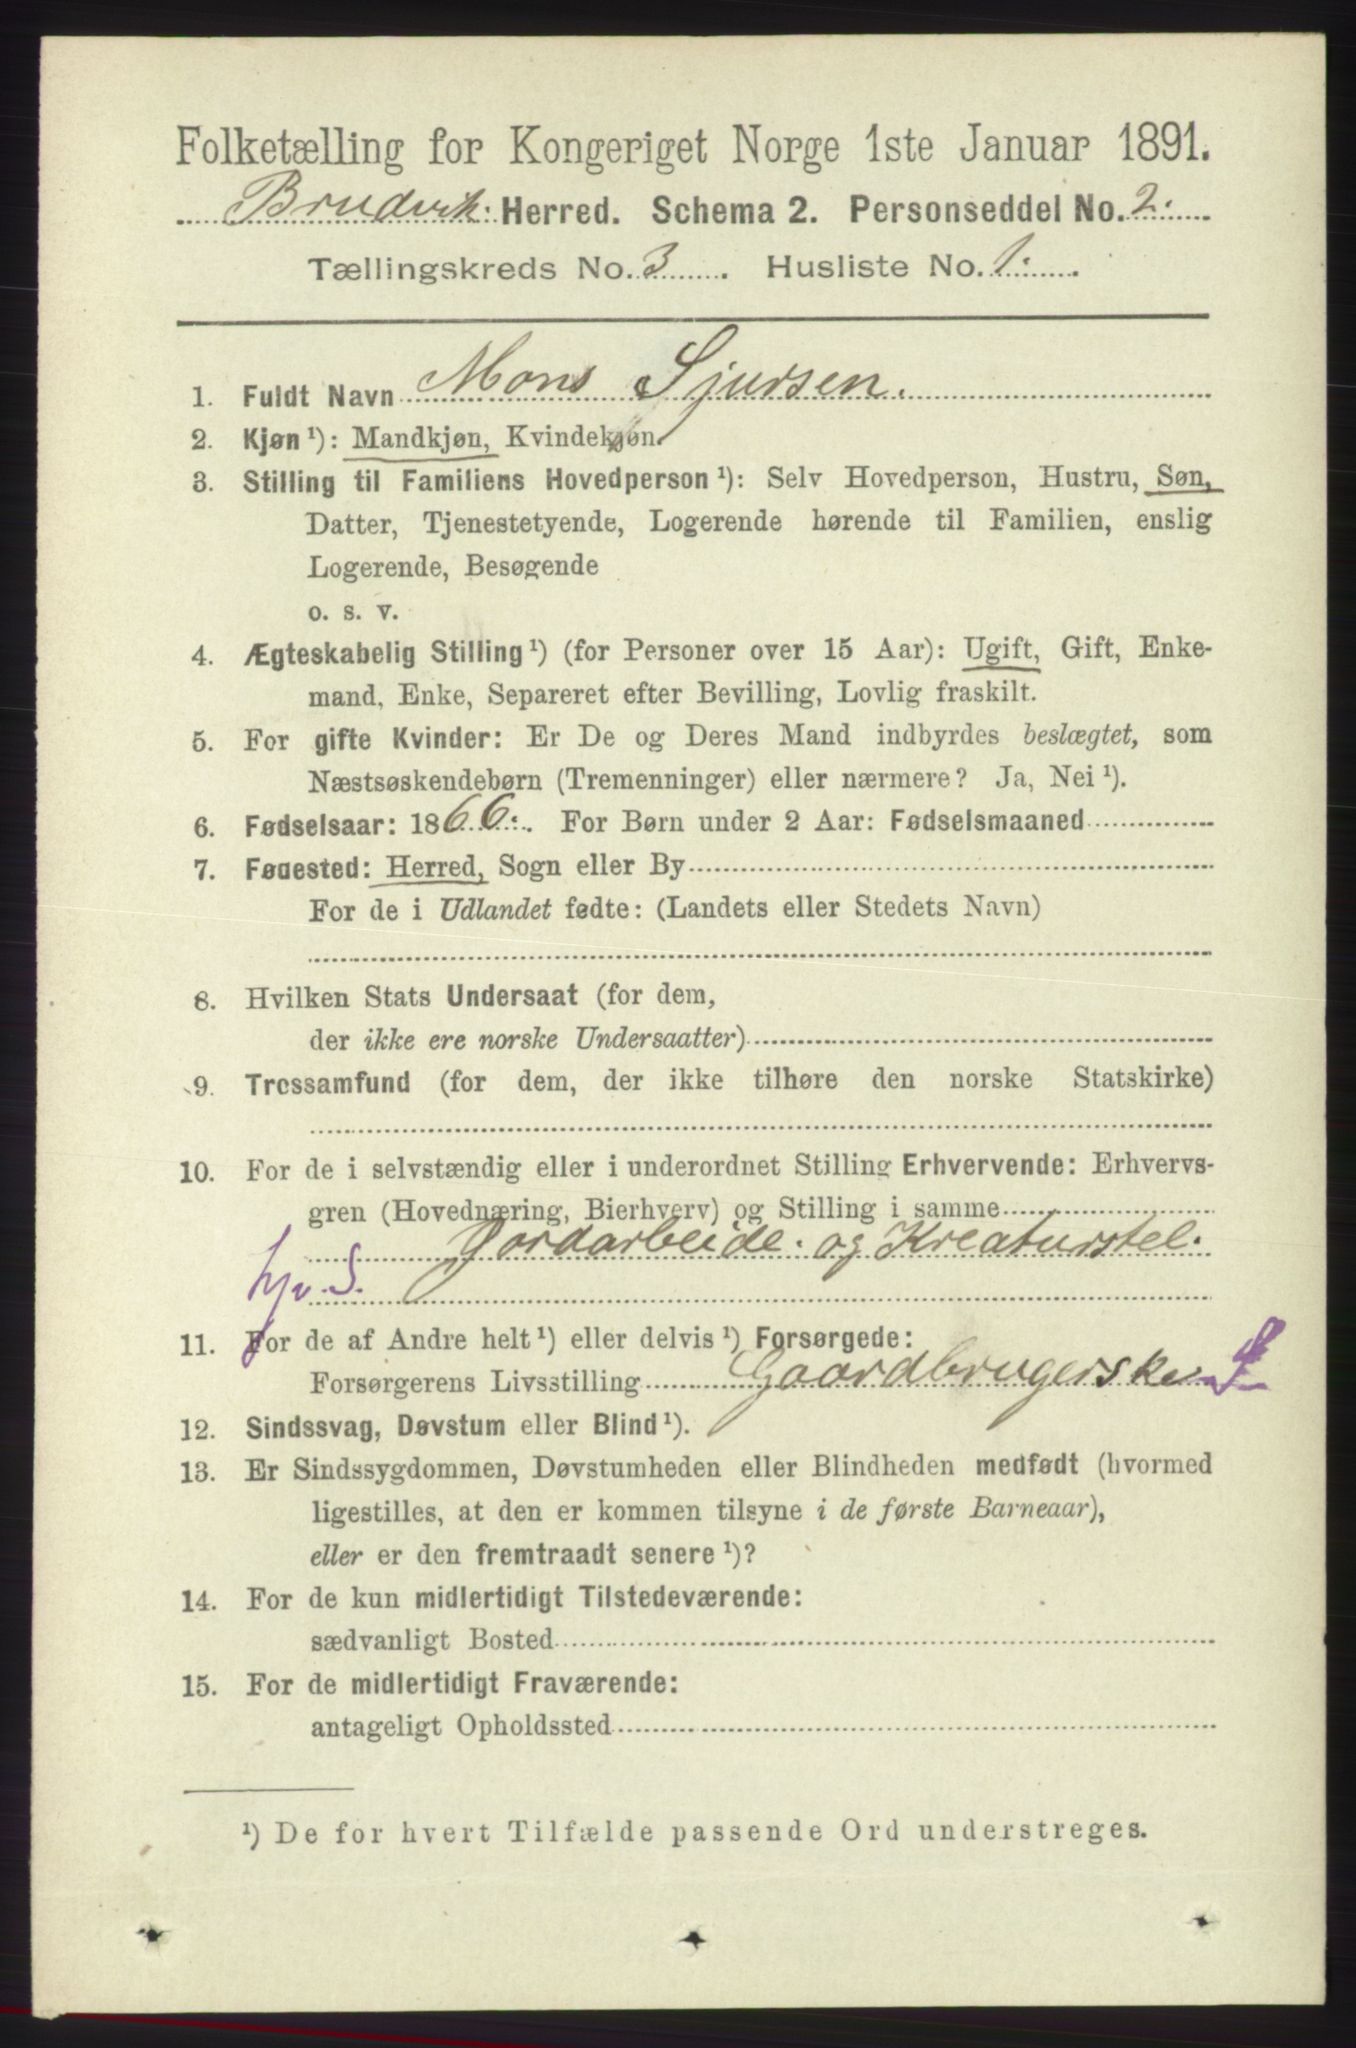 Folketælling for Kongeriget Norge 1ste Januar 1891.
Bruvik. Herred. Schema 2. Personseddel No. 2.
Tællingskreds No. 3. Husliste No. 1.
1. Fuldt Navn Mons Sjursen.
2. Kjøn ¹): Mandkjøn, Kvindekjøn.
3. Stilling til Familiens Hovedperson ¹): Selv Hovedperson, Hustru, Søn,
Datter, Tjenestetyende, Logerende hørende til Familien, enslig
Logerende, Besøgende
o. s. v.
4. Ægteskabelig Stilling ¹) (for Personer over 15 Aar): Ugift, Gift, Enke-
mand, Enke, Separeret efter Bevilling, Lovlig fraskilt.
5. For gifte Kvinder: Er De og Deres Mand indbyrdes beslægtet, som
Næstsøskendebørn (Tremenninger) eller nærmere? Ja, Nei ¹).
6. Fødselsaar: 1866. For Børn under 2 Aar: Fødselsmaaned
7. Føuested: Herred, Sogn eller By
For de i Udlandet fødte: (Landets eller Stedets Navn)
8. Hvilken Stats Undersaat (for dem,
der ikke ere norske Undersaatter)
9. Trossamfund (for dem, der ikke tilhøre den norske Statskirke)
10. For de i selvstændig eller i underordnet Stilling Erhvervende: Erhvervs-
gren (Hovednæring, Bierhverv) og Stilling i samme
Jordarbeide. og Kreaturstel.
hjv. S.
11. For de af Andre helt ¹) eller delvis ¹) Forsørgede:
Forsørgerens Livsstilling Gaardbrugerske
12. Sindssvag, Døvstum eller Blind ¹).
13. Er Sindssygdommen, Døvstumheden eller Blindheden medfødt (hvormed
ligestilles, at den er kommen tilsyne i de første Barneaar),
eller er den fremtraadt senere ¹)?
14. For de kun midlertidigt Tilstedeværende:
sædvanligt Bosted
15. For de midlertidigt Fraværende:
antageligt Opholdssted
¹) De for hvert Tilfælde passende Ord understreges.